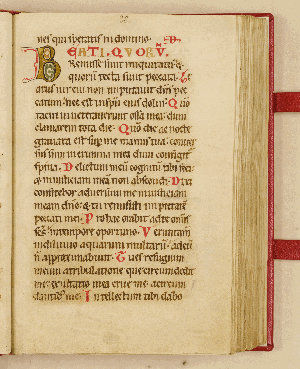 nes qui speratis in domino.
BEATI. QUORU̅.
Remisse sunt iniquitates &
quoru̅ tecta sunt peccata. Be
atus uir cui non imputauit dn̅s pec
catum: nec est in sp̅u eius dolus. Quo
tacui inueterauerunt ossa mea: dum
clamarem tota die. Quo die ac nocte
grauata est sup me manus tua: conuer
sus sum in erumna mea dum configit
spina. Delictum meu̅ cognitu tibi feci:
& iniusticiam mea̅ non abscondi. Dixi
confitebor aduersum me iniusticiam
meam dn̅o: & tu remisisti impietate̅
peccati mei. Pro hac orabit ad te omis
sc̅s: in tempore oportuno. Verumtam̅
in diluuio aquarum multaru̅: ad eu̅
n̅ approximabunt. Tu es refugium
meum a tribulatione que circumdedit
me: exultatio mea erue me a circum
dantib; me. Intellectum tibi dabo